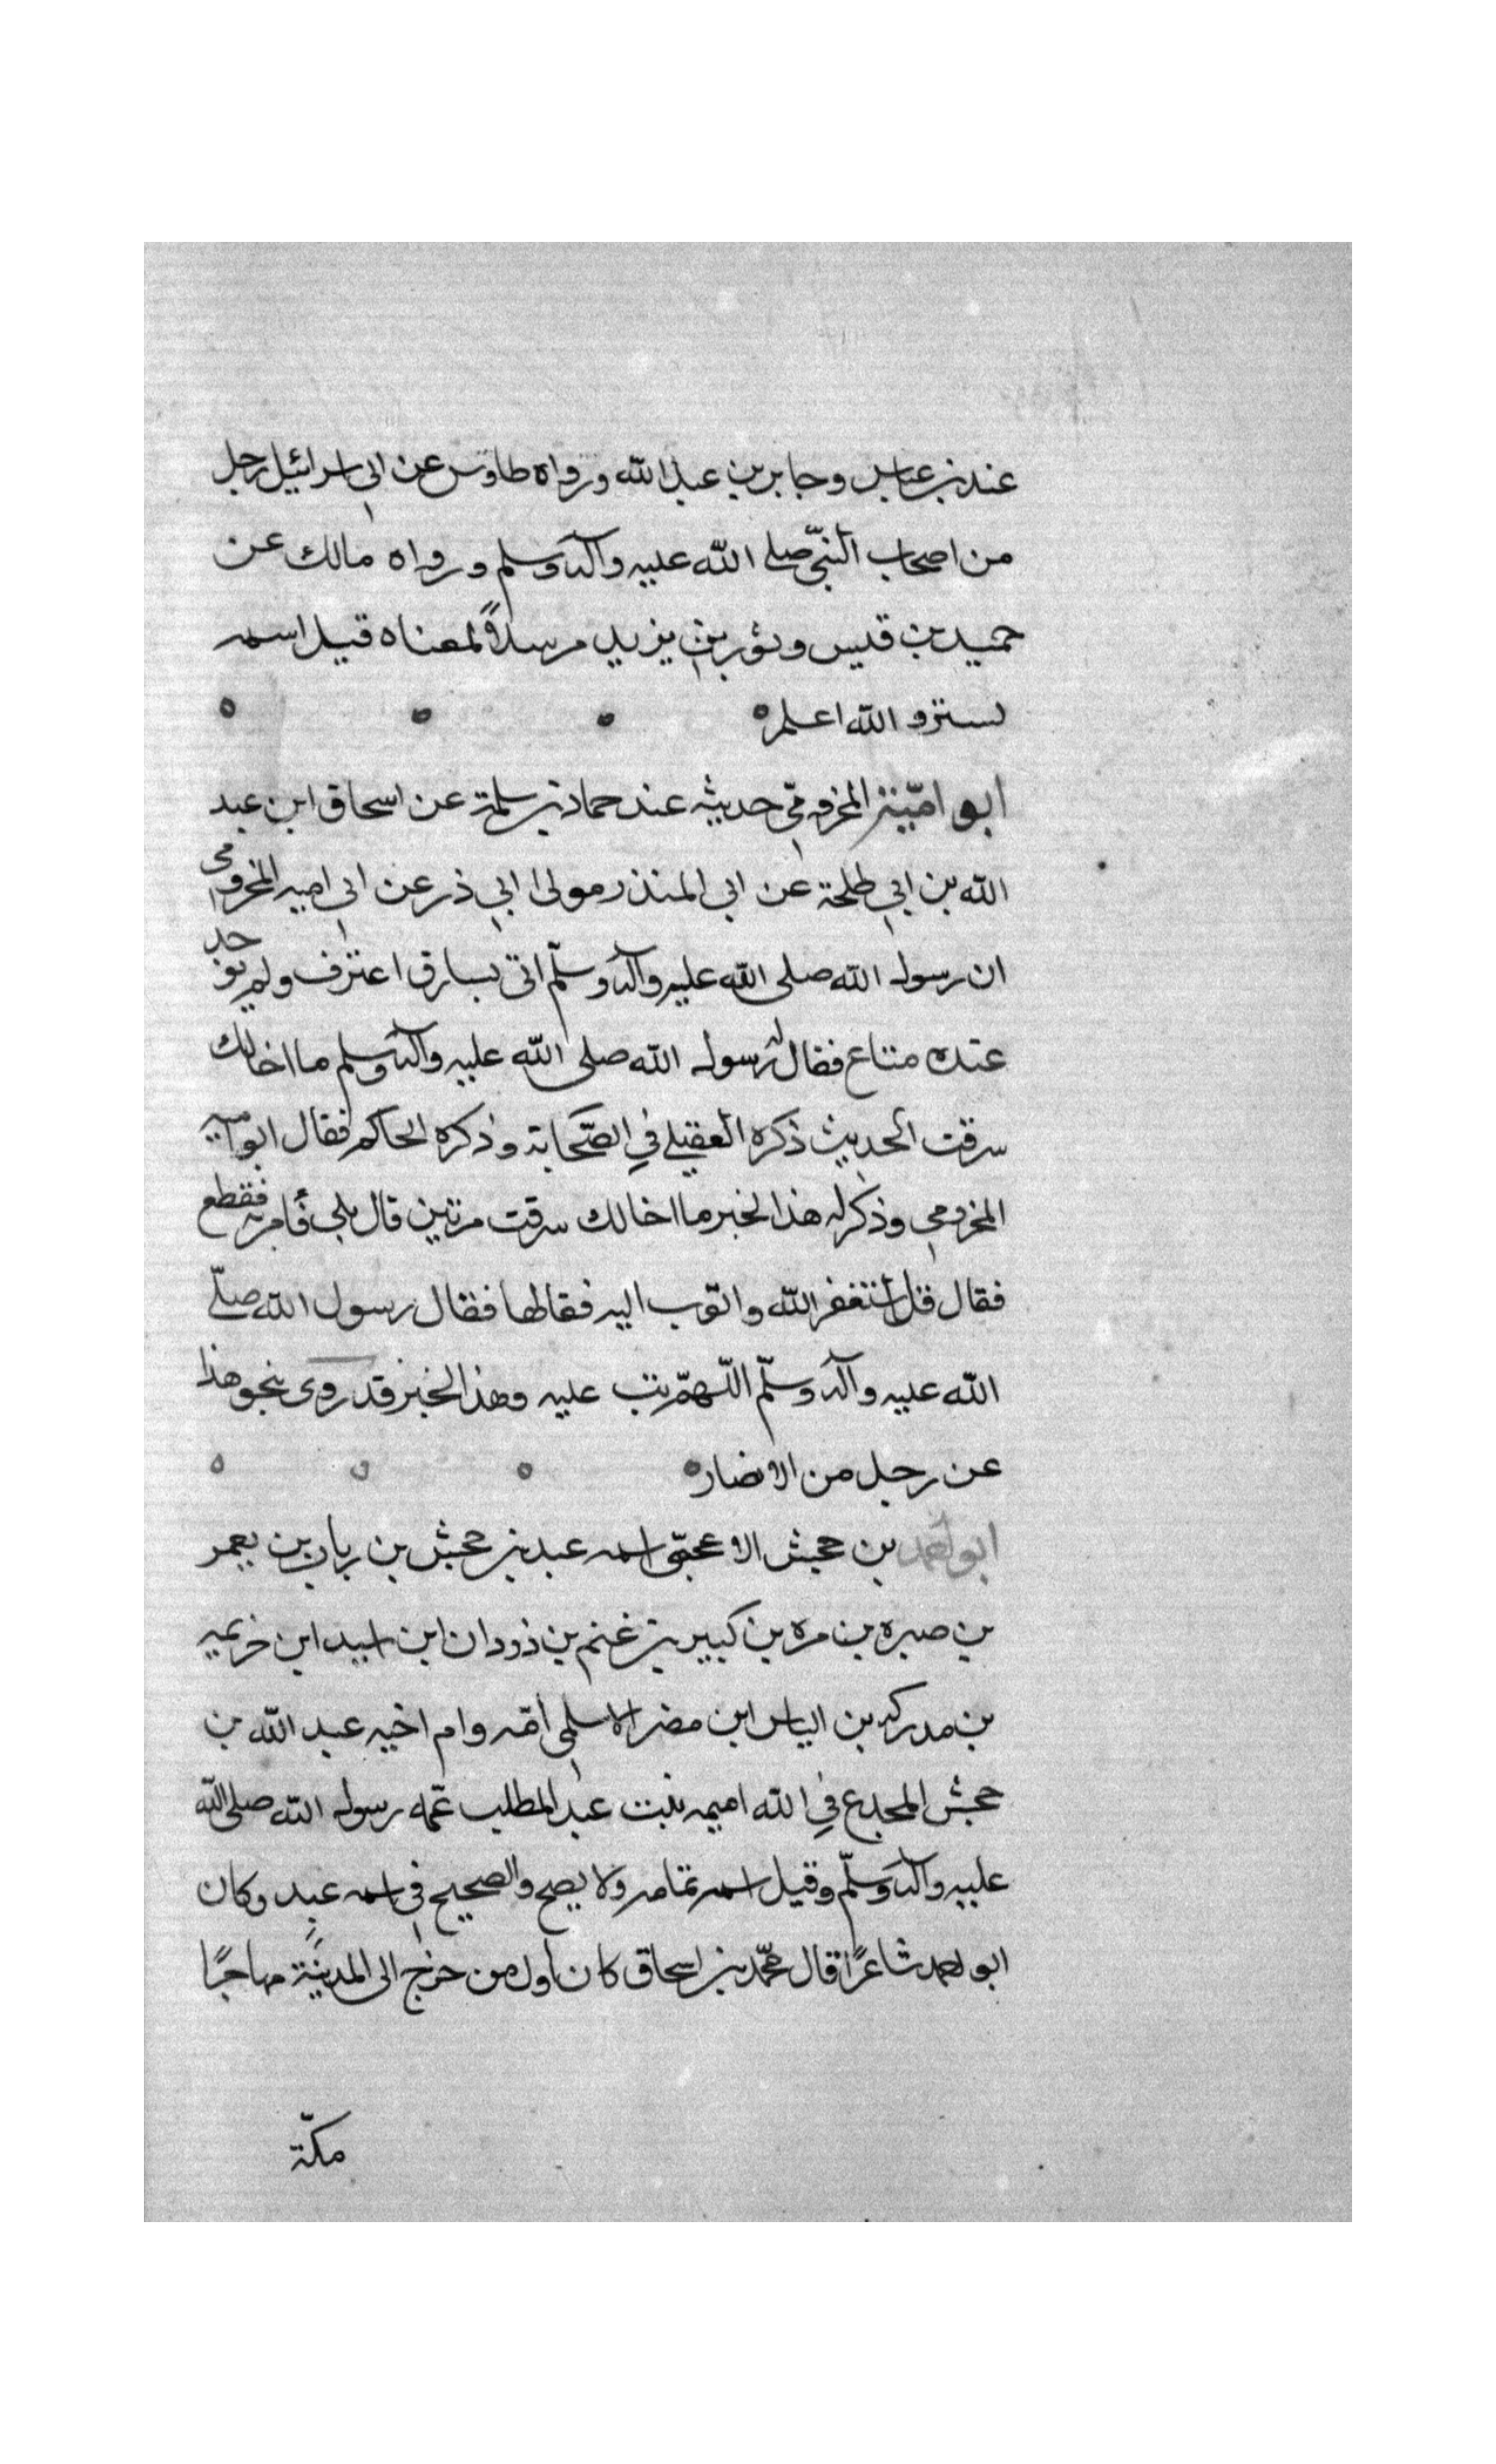 عند بن عباس وجابر بن عبد الله ورواه طاوس عن ابي اسرائيل رجل
من اصحاب النبي صلى الله عليه وآله وسلم ورواه مالك عن
حميد بن قيس وثور بن يزيد مرسلاً لمعناه قيل اسمه
والله اعلم
ابو اميّة المخزومي حديثه عند حماد بن سلمة عن اسحاق ابن عبد
الله بن ابي طلحة عن ابي المنذر مولى ابي ذر عن ابي اميه المخزومي
ان رسول الله صلى الله عليه وآله وسلّم اتي بسارق اعترف ولم يوجد
عنده متاع فقال له رسول الله صلى الله عليه وآله وسلم ما اخالك
سرقت الحديث ذكره العقيلي في الصّحابة وذكره الحاكم فقال ابو اميه
المخزومي وذكر له هذا الخبر ما اخالك سرقت مرتين قال بلى فأمر به فقطع
فقال قل استغفر الله واتوب اليه فقالها فقال رسول الله صلّى
الله عليه وآله وسلّم اللّهمّ تب عليه وهذا الخبر قد روى بنحو هذا
عن رجل من الانصار
ابو احمد بن جحش الاعمى اسمه عبد بن جحش بن رياب بن يعمر
بن صبره بن مره بن كبير بن غنم بن ذودان ابن اسيد ابن خزيمه
بن مدركه بن الياس ابن مضر الاسلمي أمّه وام اخيه عبد الله بن
جحش المجدع في الله اميمه بنت عبد المطلب عمّه رسول الله صلى الله
عليه وآله وسلّم وقيل اسمه ثمامه ولا يصح والصحيح في اسمه عبد وكان
ابو احمد شاعرًا قال محمّد بن اسحاق كان أول من خرج الى المدينة مهاجرًا
مكّة